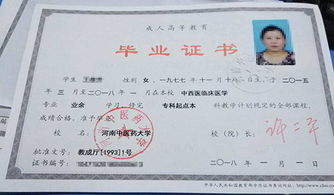 成人高等教育
毕业证书
学生 性别 女，一九七七年十一月十八日生，于二〇一五
年三月至二〇一八年一月在本校 中西医临床医学
专业 业余 学习，修完 专科起点本 科教学计划规定的全部课程，
成绩合格，准予毕业。
校 名：河南中医药大学 校（院）长：
批准文号：教成厅[1993]1号
证书编号： 二〇一八年一月一日